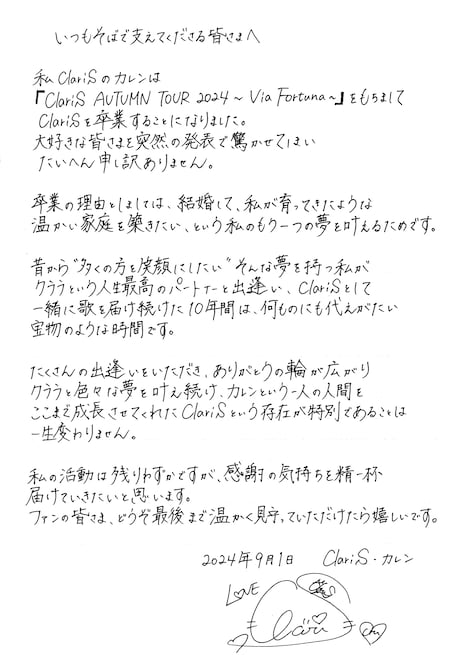 いつもそばで支えてくださる皆さまへ
私 ClariSのカレンは
「ClariS AUTUMN TOUR 2024 ~ Via Fortuna~」をもちまして
ClariSを卒業することになりました。
大好きな皆さまを突然の発表で驚かせてしまい
たいへん申し訳ありません。
卒業の理由としましては、結婚して、私が育ってきたような
温かい家庭を築きたい、という私のもう一つの夢を叶えるためです。
昔から"多くの方を笑顔にしたい"そんな夢を持つ私が
クララという人生最高のパートナーと出逢い、ClariSとして
一緒に歌を届け続けた10年間は、何ものにも代えがたい
宝物のような時間です。
たくさんの出逢いをいただき、ありがとうの輪が広がり
クララと色々な夢を叶え続け、カレンという一人の人間を
ここまで成長させてくれたClariSという存在が特別であることは
一生変わりません。
私の活動は残りわずかですが、感謝の気持ちを精一杯
届けていきたいと思います。
ファンの皆さま、どうぞ最後まで温かく見守っていただけたら嬉しいです。
2024年9月1日 ClariS・カレン
LOVE